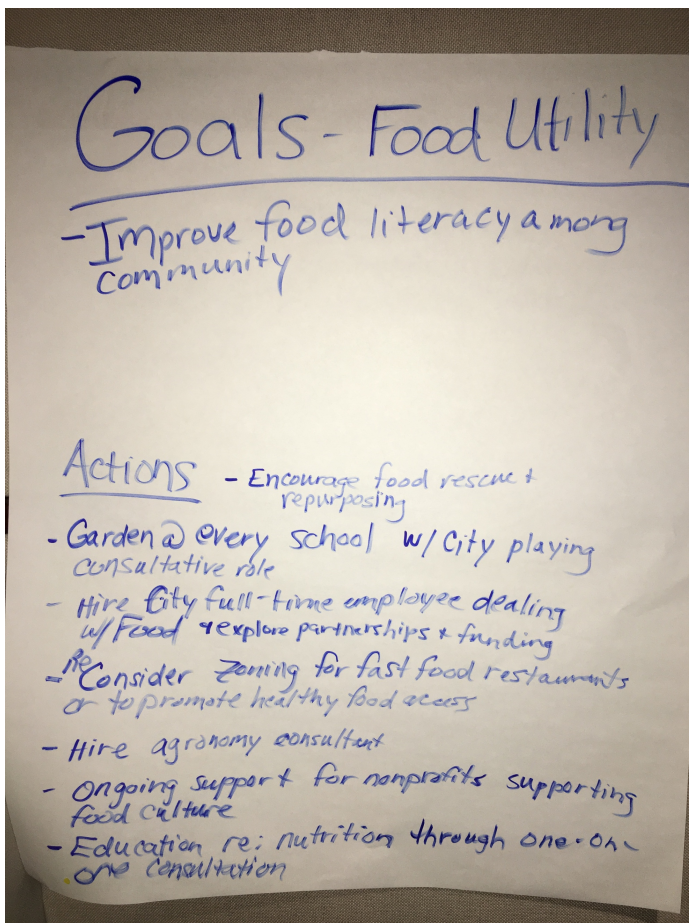 Goals - Food Utility
- Improve food literacy among
community
Actions - Encourage food rescue +
repurposing
- Garden @ every school w/ City playing
consultative role
- Hire City full-time employee dealing
w/ Food & explore partnerships + funding
- ReConsider zoning for fast food restaurants
or to promote healthy food access
- Hire agronomy consultant
- Ongoing support for nonprofits supporting
food culture
- Education re: nutrition through one-on-
one consultation